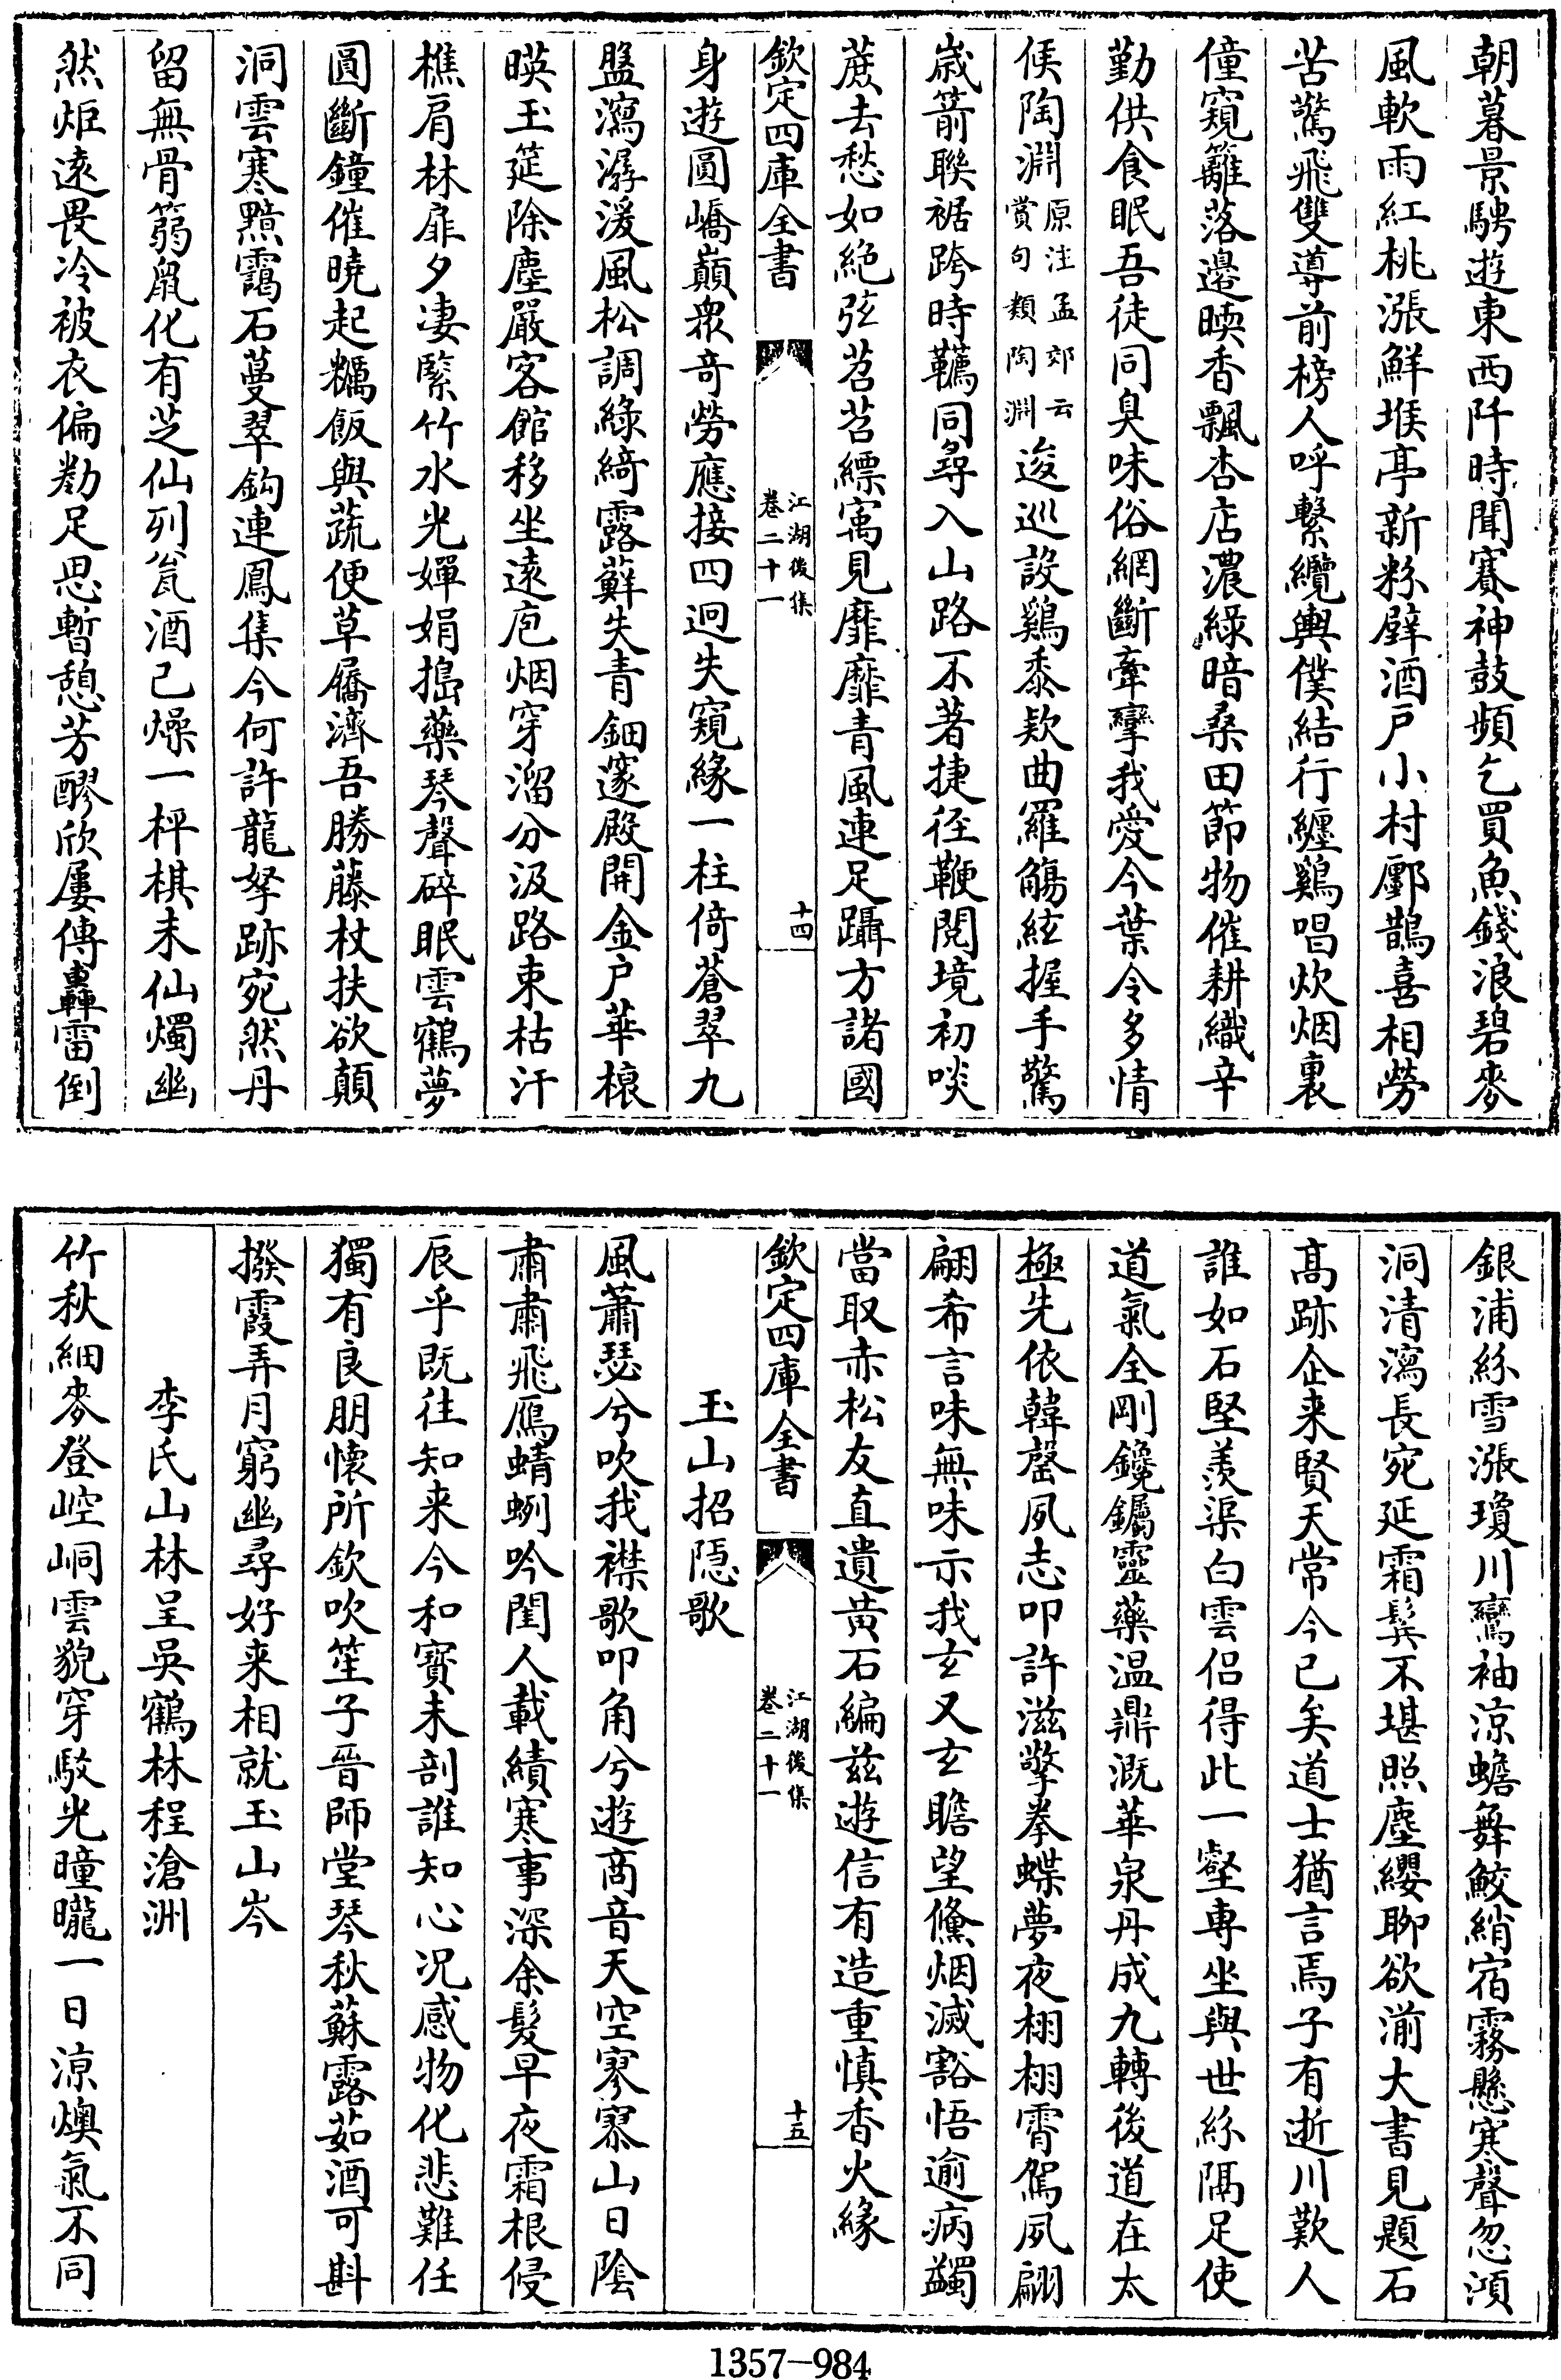 朝暮景騁遊東西阡時聞賽神鼓頻乞買魚錢浪碧麥
風軟雨紅桃漲鮮堠亭新粉壁酒戸小村鄽鵲喜相勞
苦驚飛雙導前榜人呼繫纜輿僕結行纏鷄唱炊烟裏
僮窺籬落邊暎香飄杏店濃緑暗桑田節物催耕織辛
勤供食眠吾徒同臭味俗網斷牽攣我愛今葉令多情
侯陶淵原注孟郊云賞句類陶淵逡巡設鷄黍欵曲羅觴絃握手驚
歳箭聯裾跨時韉同尋入山路不著捷徑鞭閱境初啖
蔗去愁如絶弦苕苕縹寓見靡靡青風連足躡方諸國
欽定四庫全書
江湖後集
卷二十一
十四
身遊圓嶠巔衆奇勞應接四迥失窺緣一柱倚蒼翠九
盤瀉潺湲風松調綠綺露蘚失青鈿邃殿開金户華榱
暎玉筵除塵嚴客館移坐遠庖烟穿溜分汲路束枯汗
樵肩林扉夕凄緊竹水光嬋娟搗藥琴聲碎眠雲鶴夢
圓斷鐘催曉起糲飯與蔬便草屩濟吾勝藤杖扶欲顛
洞雲寒黮靄石蔓翠鈎連鳳集今何許龍拏跡宛然丹
留無骨篛鼠化有芝仙列瓮酒已燥一枰棋未仙燭幽
然炬遠畏冷被衣偏勸足思暫憩芳醪欣屢傳轟雷倒
銀浦絲雪漲瓊川鸞袖涼蟾舞鮫綃宿霧懸寒聲忽澒
洞清瀉長宛延霜髩不堪照塵纓聊欲湔大書見題石
髙跡企来賢天常今已矣道士猶言焉子有逝川歎人
誰如石堅羨渠白雲侣得此一壑専坐與世絲隔足使
道氣全剛鑱钃靈藥温鼎溉華泉丹成九轉後道在太
極先依韓罄夙志叩許滋擎拳蝶夢夜栩栩霄駕夙翩
翩希言味無味示我玄又玄瞻望儵烟滅豁悟逾病蠲
當取赤松友直遺黄石編兹遊信有造重慎香火緣
欽定四庫全書
江湖後集
卷二十一
十五
玉山招隠歌
風蕭瑟兮吹我襟歌叩角兮遊商音天空寥寥山日陰
肅肅飛鴈蜻蛚吟閨人載績寒事深余髮早夜霜根侵
辰乎既往知来今和寳未剖誰知心况感物化悲難任
獨有良朋懷所欽吹笙子晉師堂琴秋蘇露茹酒可斟
撥霞弄月窮幽尋好来相就玉山岑
李氏山林呈吳鶴林程滄洲
竹秋細麥登崆峒雲貌穿駮光曈曨一日涼燠氣不同
1357-984